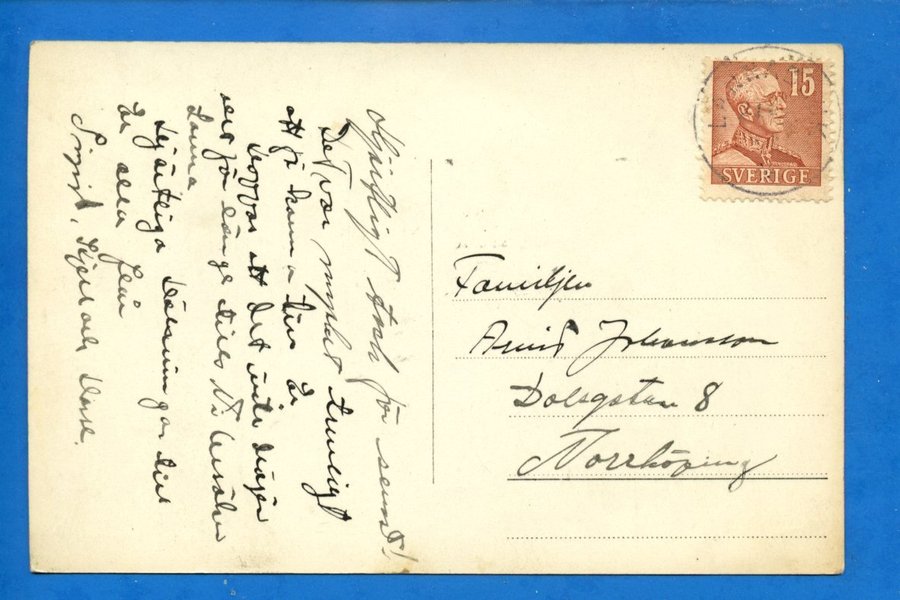 Hjärtligt tack för senast!
Det var mycket trevligt
att få komma till Er
Hoppas att det inte dröjer
för länge tills Vi
Hjärtliga hälsningar till
Er alla från
Kjell och Hasse.
15
SVERIGE
Familjen
Arvid Johansson
Dalsgatan 8
Norrköping